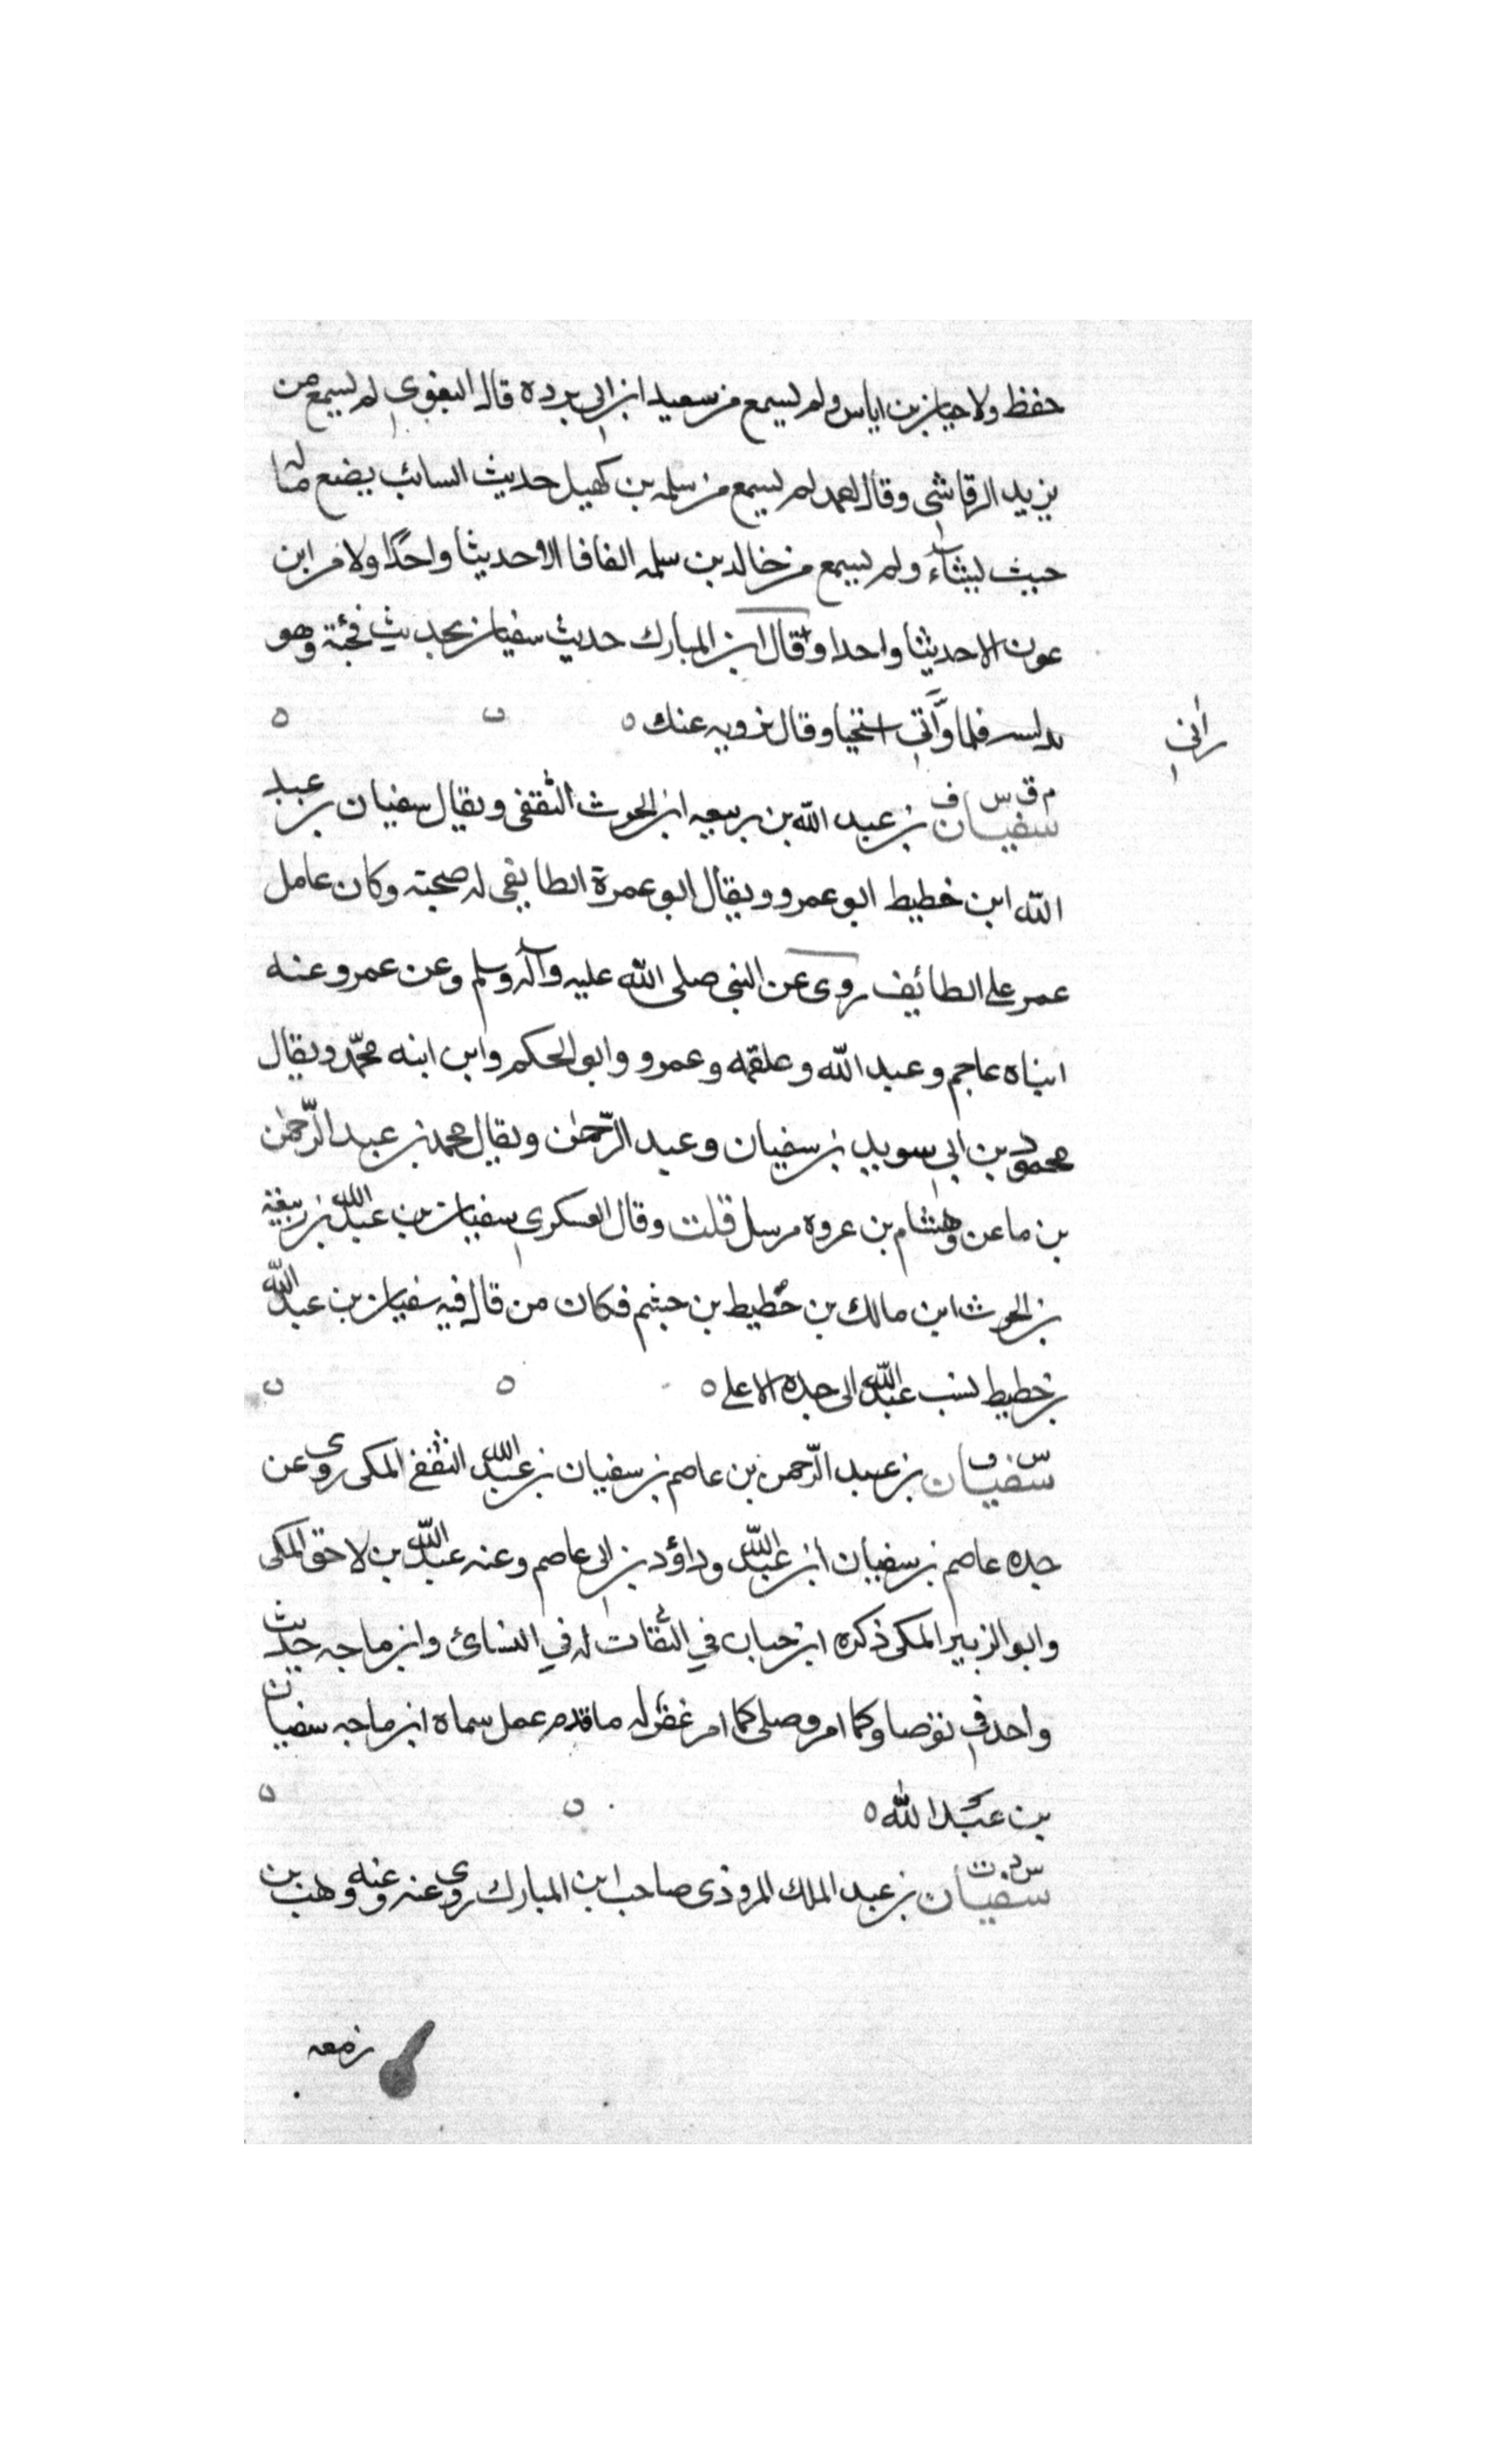 حفظ ولا حيان بن اياس ولم يسمع من سعيد ابن ابي بردة قال البغوي لم يسمع من
يزيد الرقاشي وقال احمد لم يسمع من سلمه بن كهيل حديث السائب يضع ماله
حيث يشاء ولم يسمع من خالد بن سلمه الفافا الا حديثا واحدا ولا من ابن
عون الا حديثا واحدا وقال ابن المبارك حديث سفيان بحديث فجئته وهو
يدلسه فلما رآني استحيا وقال نرويه عنك ه
راني
م ق س ف
سفيان بن عبد الله بن ربيعه ابن الحرث الثقفي ويقال سفيان بن عبد
الله ابن خطيط ابو عمرو ويقال ابو عمرة الطايفي له صحبته وكان عامل
عمر على الطائف روى عن النبي صلى الله عليه وآله وسلم وعن عمر وعنه
ابناه عاجم وعبد الله وعلقمه وعمرو وابو الحكم وابن ابنه محمد ويقال
محمود بن ابي سويد بن سفيان وعبد الرحمن ويقال محمد بن عبد الرحمن
بن ماعن وهشام بن عروه مرسل قلت وقال العسكري سفيان بن عبد الله بن ربيعة
بن الحرث ابن مالك بن حطيط بن جشم فكان من قال فيه سفيان بن عبد الله
بن خطيط نسب عبد الله الى جده الاعلى ه
س ق
سفيان بن عبد الرحمن بن عاصم بن سفيان بن عبد الله الثقفي المكى روى عن
جده عاصم بن سفيان ابن عبد الله وداؤد بن ابى عاصم وعنه عبد الله بن لاحق المكى
وابو الزبير المكى ذكره ابن حبان في الثقات له في النسائ وابن ماجه حديث
واحد في توضا وكما امر وصلى كما امر غفر له ما قدم عمل سماه ابن ماجه سفيان
بن عبد الله ه
س د ت
سفيان بن عبد الملك المروذى صاحب ابن المبارك روى عنه وعنه وهب بن
زمعه